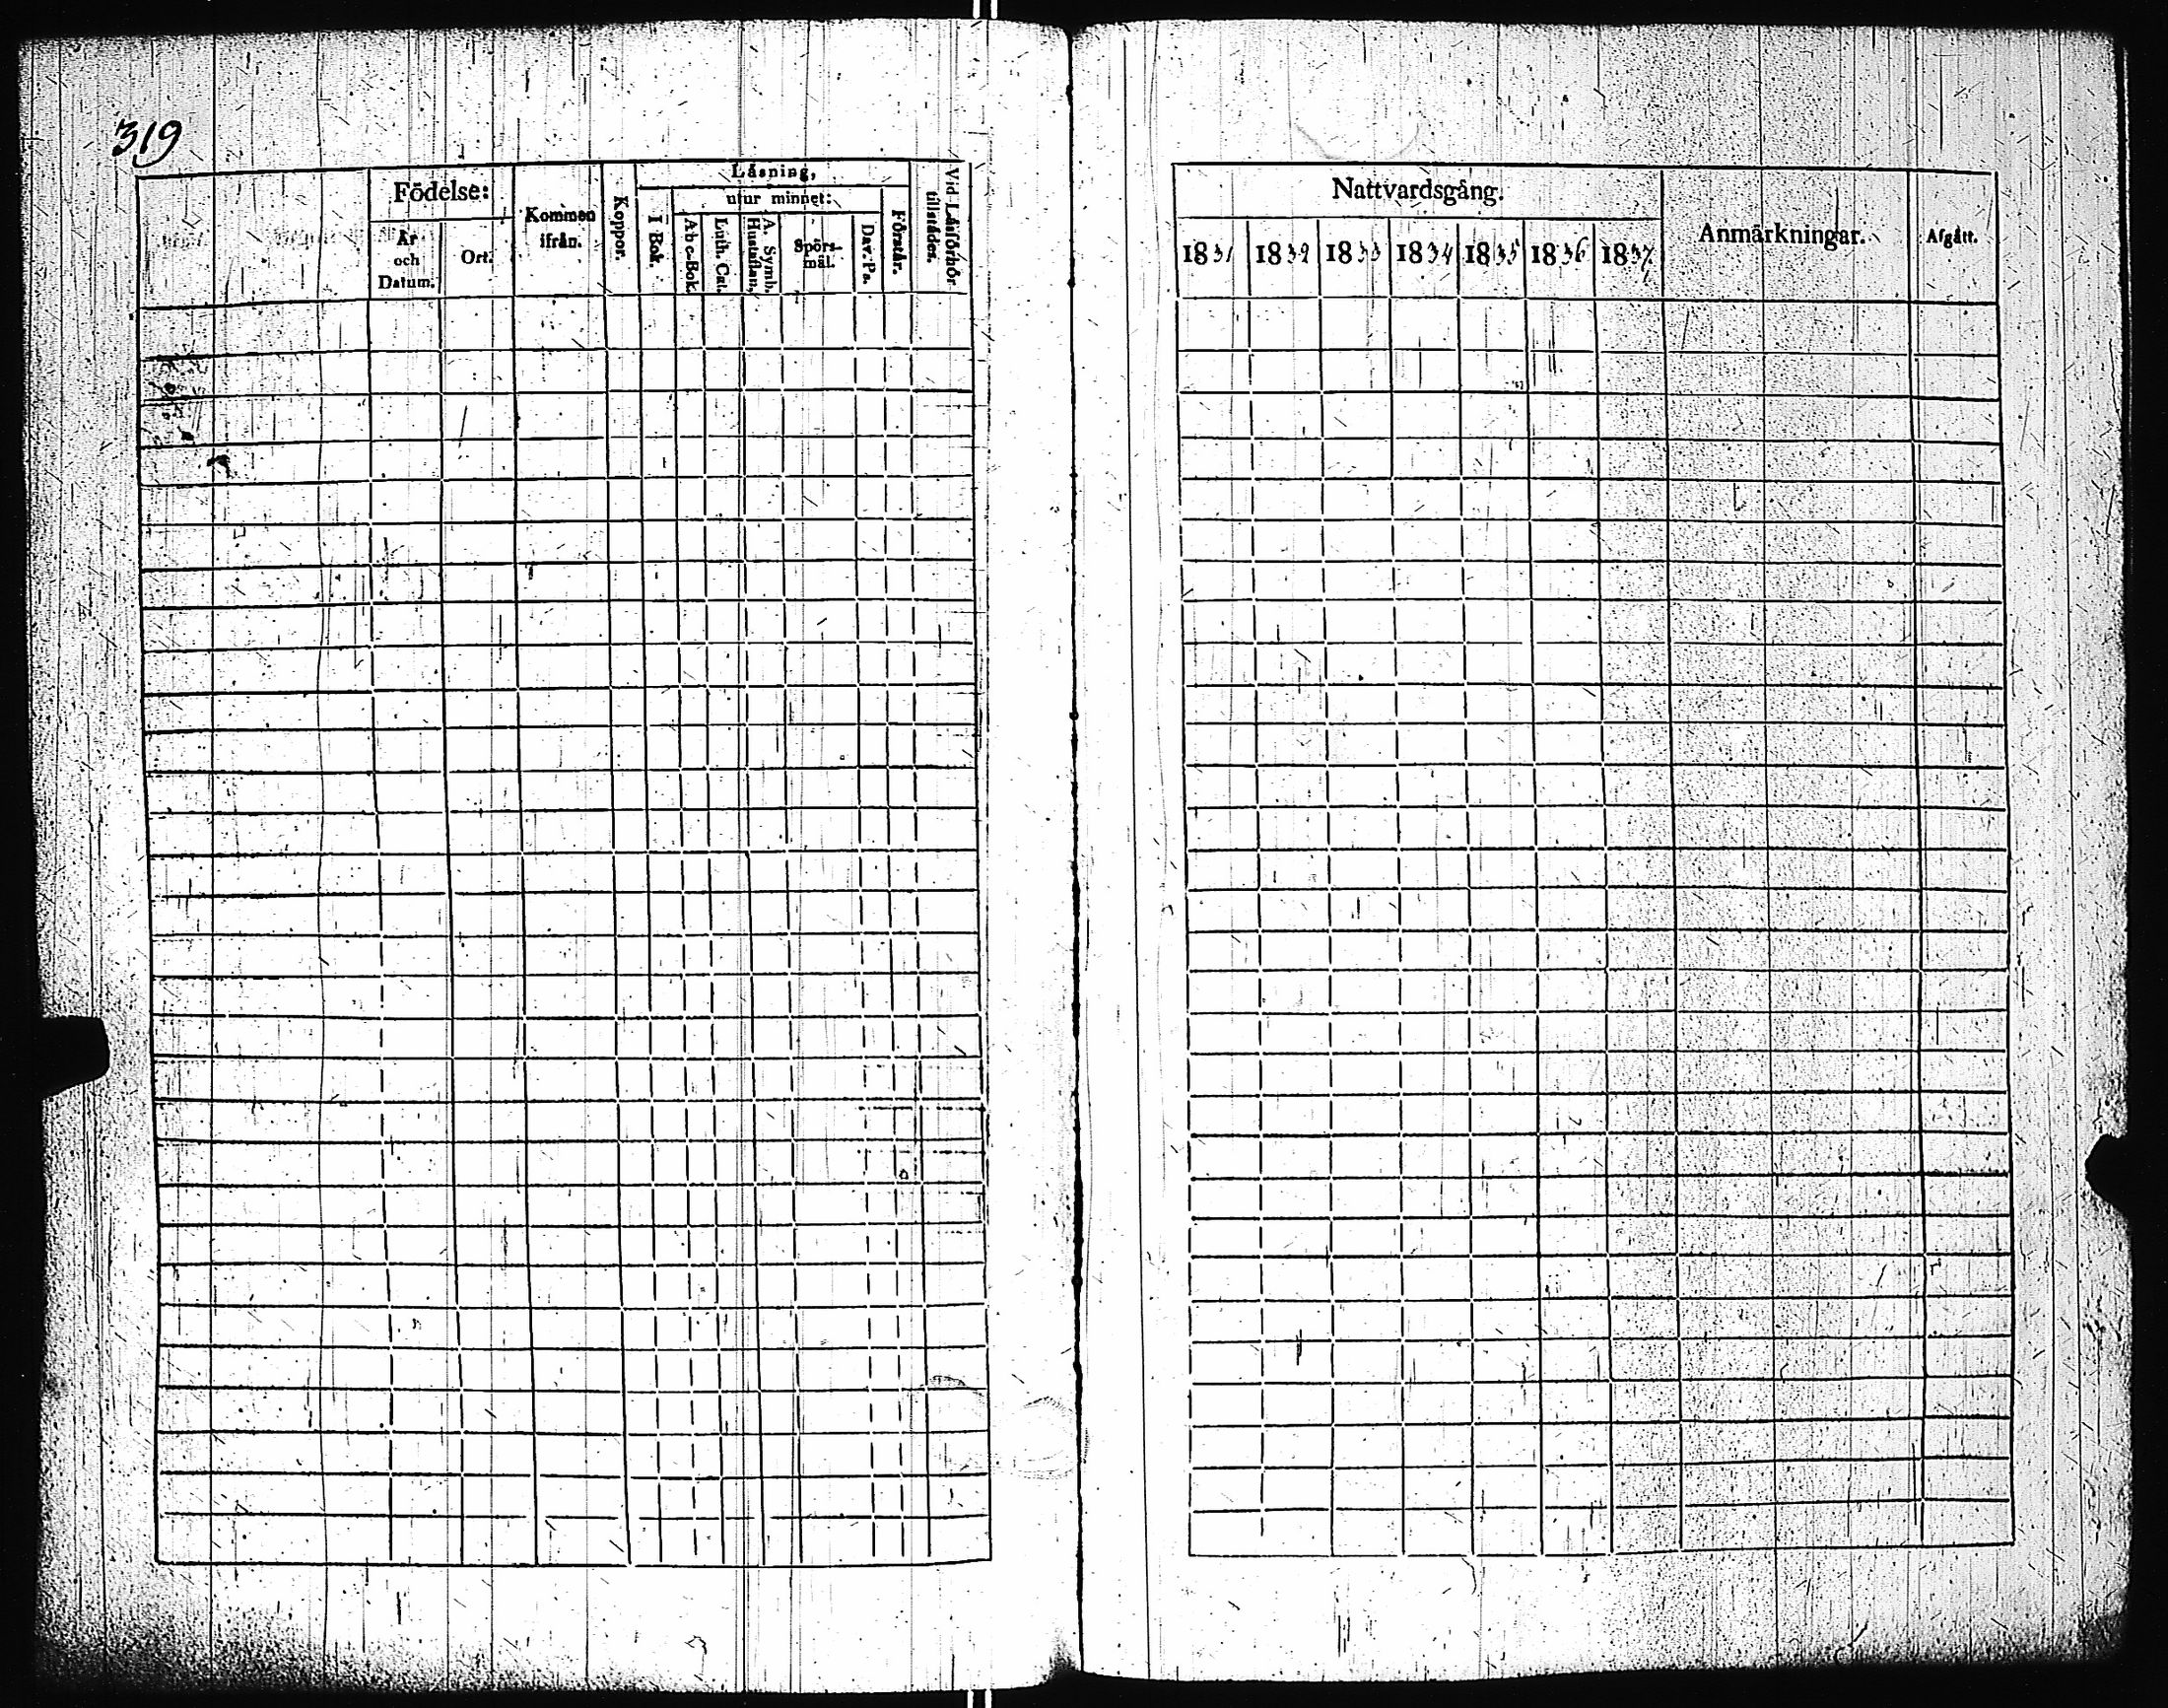 319
Födelse:
År
och
Datum.
Ort.
Kommen
ifrån.
Koppor.
Läsning,
utur minnet:
I Bok.
Abc-Bok.
Luth. Cat.
A. Symb.
Hustaflan,
Spörs-
mål.
Dav. Ps.
Förstår.
Vid Läsförhör
tillstädes.
Nattvardsgång.
1831 1832 1833 1834 1835 1836 1837
Anmärkningar.
Afgått.